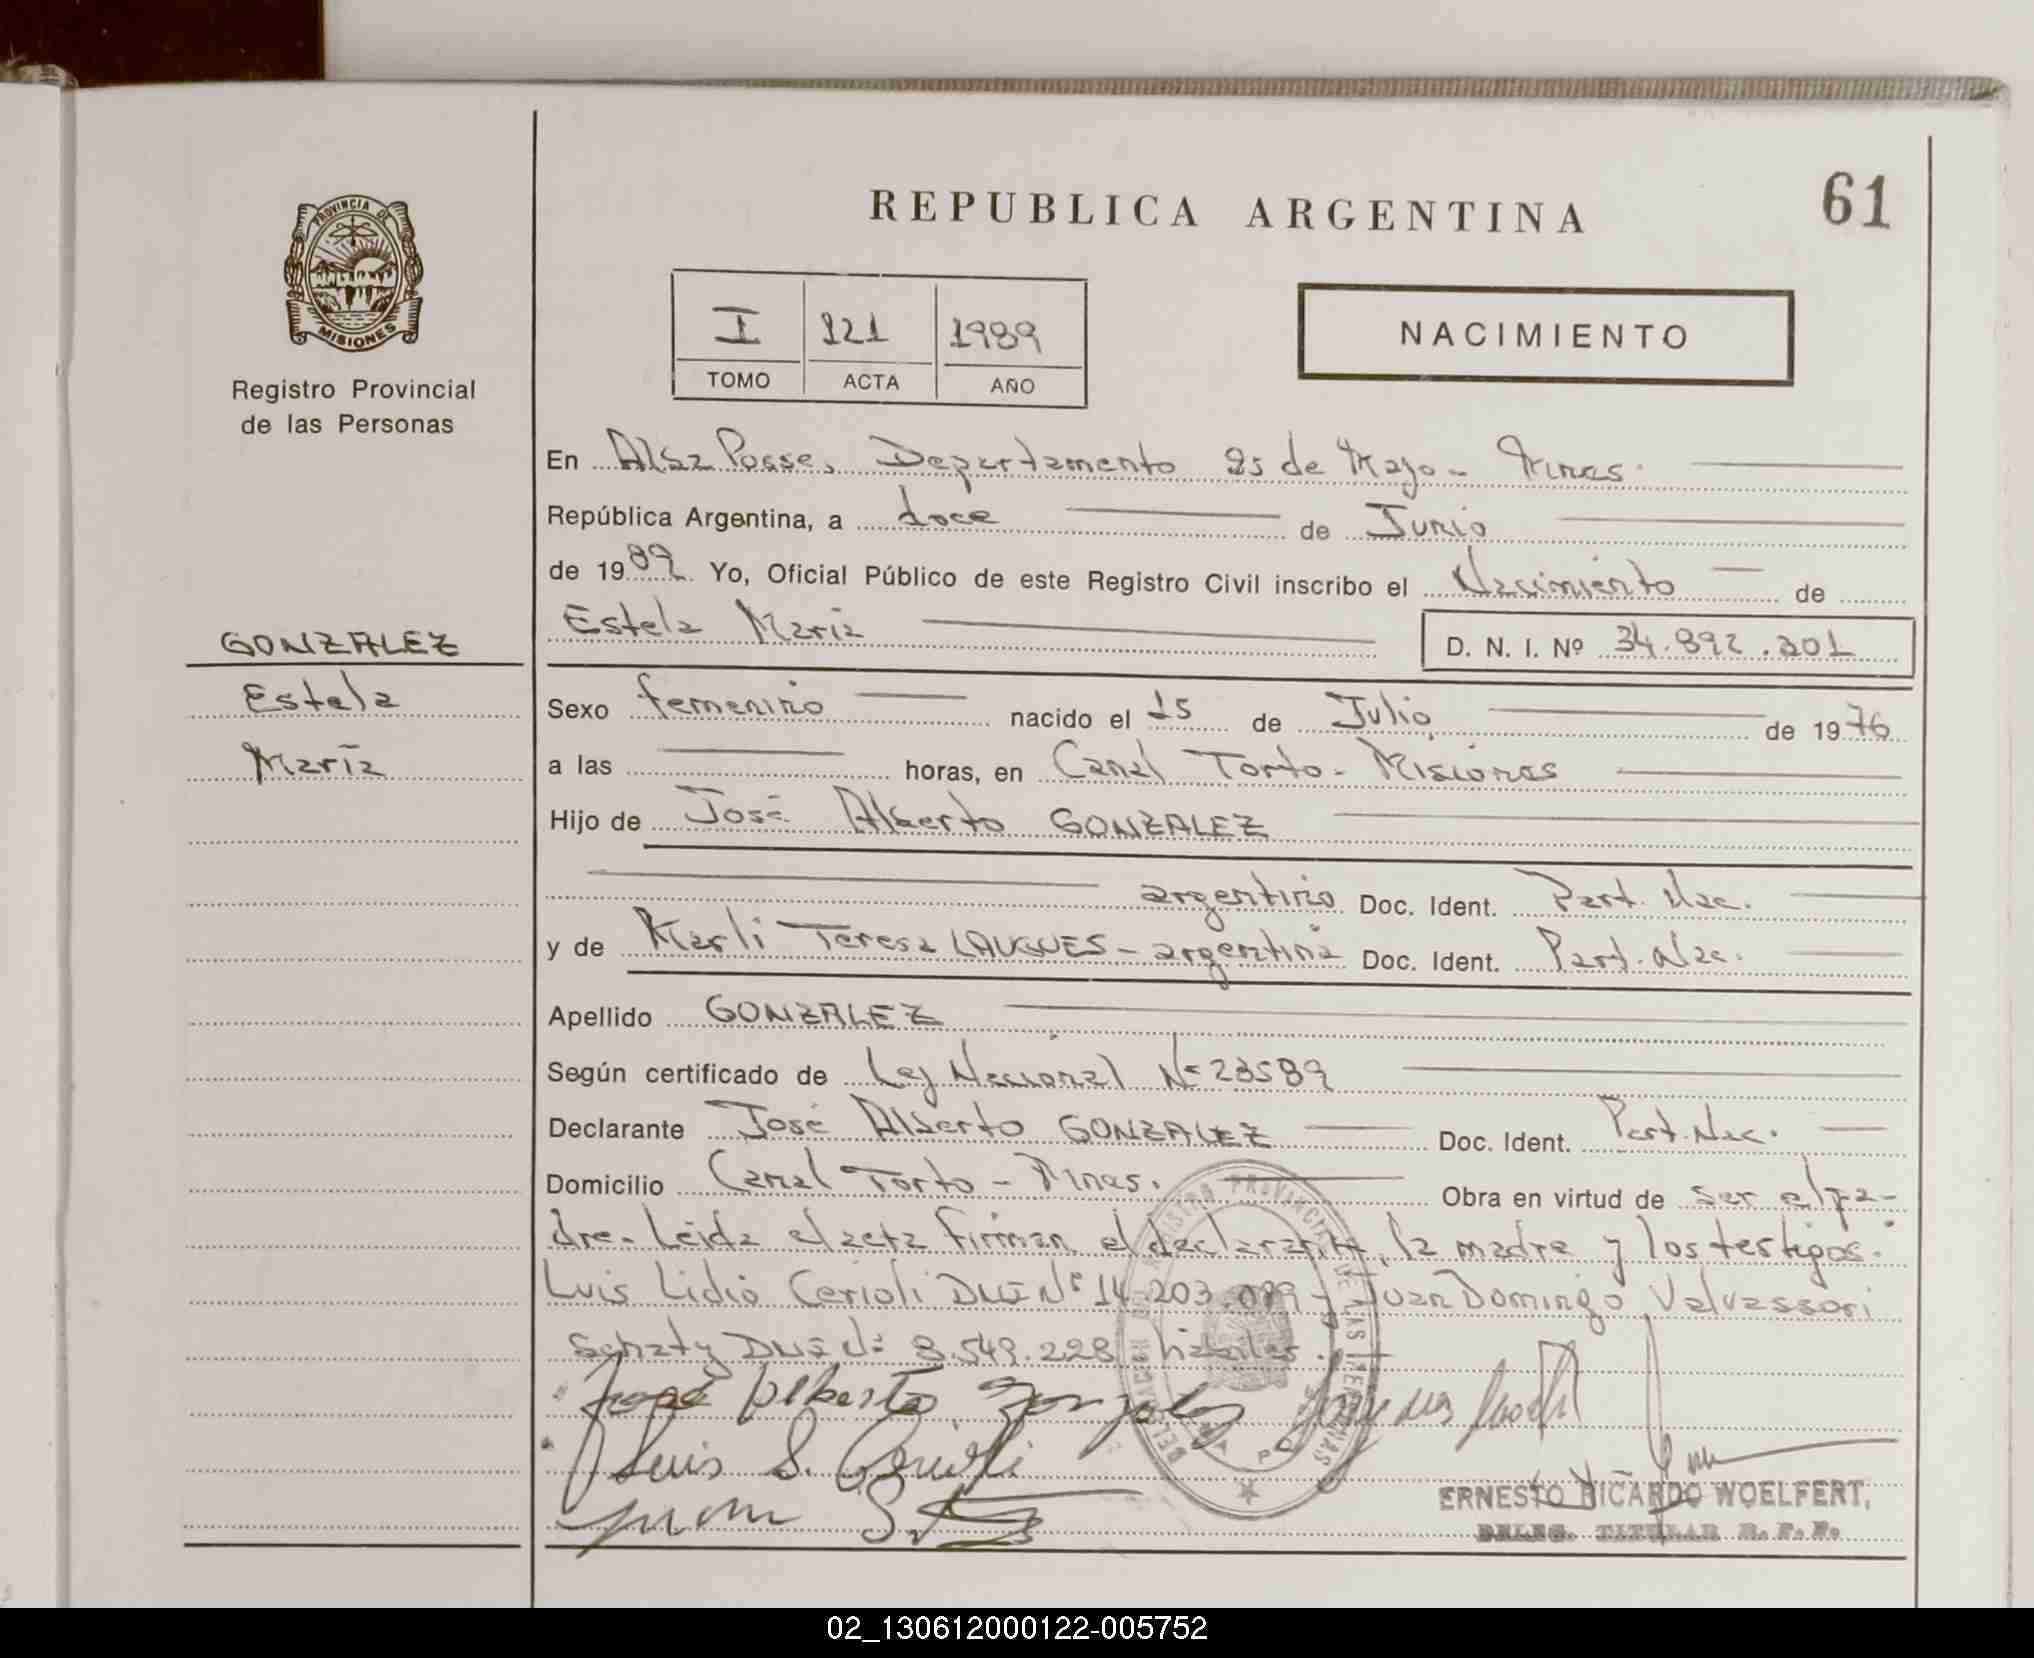 REPUBLICA ARGENTINA
61
PROVINCIA DE
MISIONES
Registro Provincial
de las Personas
I 121 1989
TOMO ACTA AÑO
NACIMIENTO
En Alba Posse, Departamento 25 de Mayo - Mnes.
República Argentina, a doce de Junio
de 1989 Yo, Oficial Público de este Registro Civil inscribo el Nacimiento de
Estela María D. N. I. Nº 34.892.301
GONZALEZ
Estela
María
Sexo femenino nacido el 15 de Julio de 1976
a las horas, en Canal Torto - Misiones
Hijo de José Alberto GONZALEZ
argentino Doc. Ident. Part. Nac.
y de Marli Teresa LAUGUES - argentina Doc. Ident. Part. Nac.
Apellido GONZALEZ
Según certificado de Ley Nacional Nº 23589
Declarante José Alberto GONZALEZ Doc. Ident. Part. Nac.
Domicilio Canal Torto - Mnes. Obra en virtud de ser el pa-
dre. Leída el acta firman el declarante, la madre y los testigos:
Luis Lidio Cerioli DNI Nº 14.203.089 y Juan Domingo Valvassori
DNI Nº 8.549.228 hábiles.
José Alberto Gonzalez
Luis S. Cerioli
ERNESTO RICARDO WOELFERT,
DELEG. TITULAR R. P. P.
02_130612000122-005752